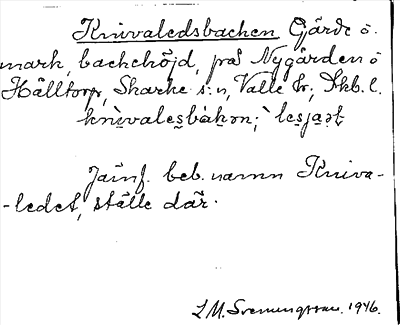 Knivaledsbacken Gjärde o.
mark, backehöjd, på Nygården o
Hälltorp, Skarke s:n, Valle hr; Skb. l.
knìvalesbàkon;
Jämf. beb.namn Kniva-
-ledet, ställe där.
L M. Svenungsson. 1946.